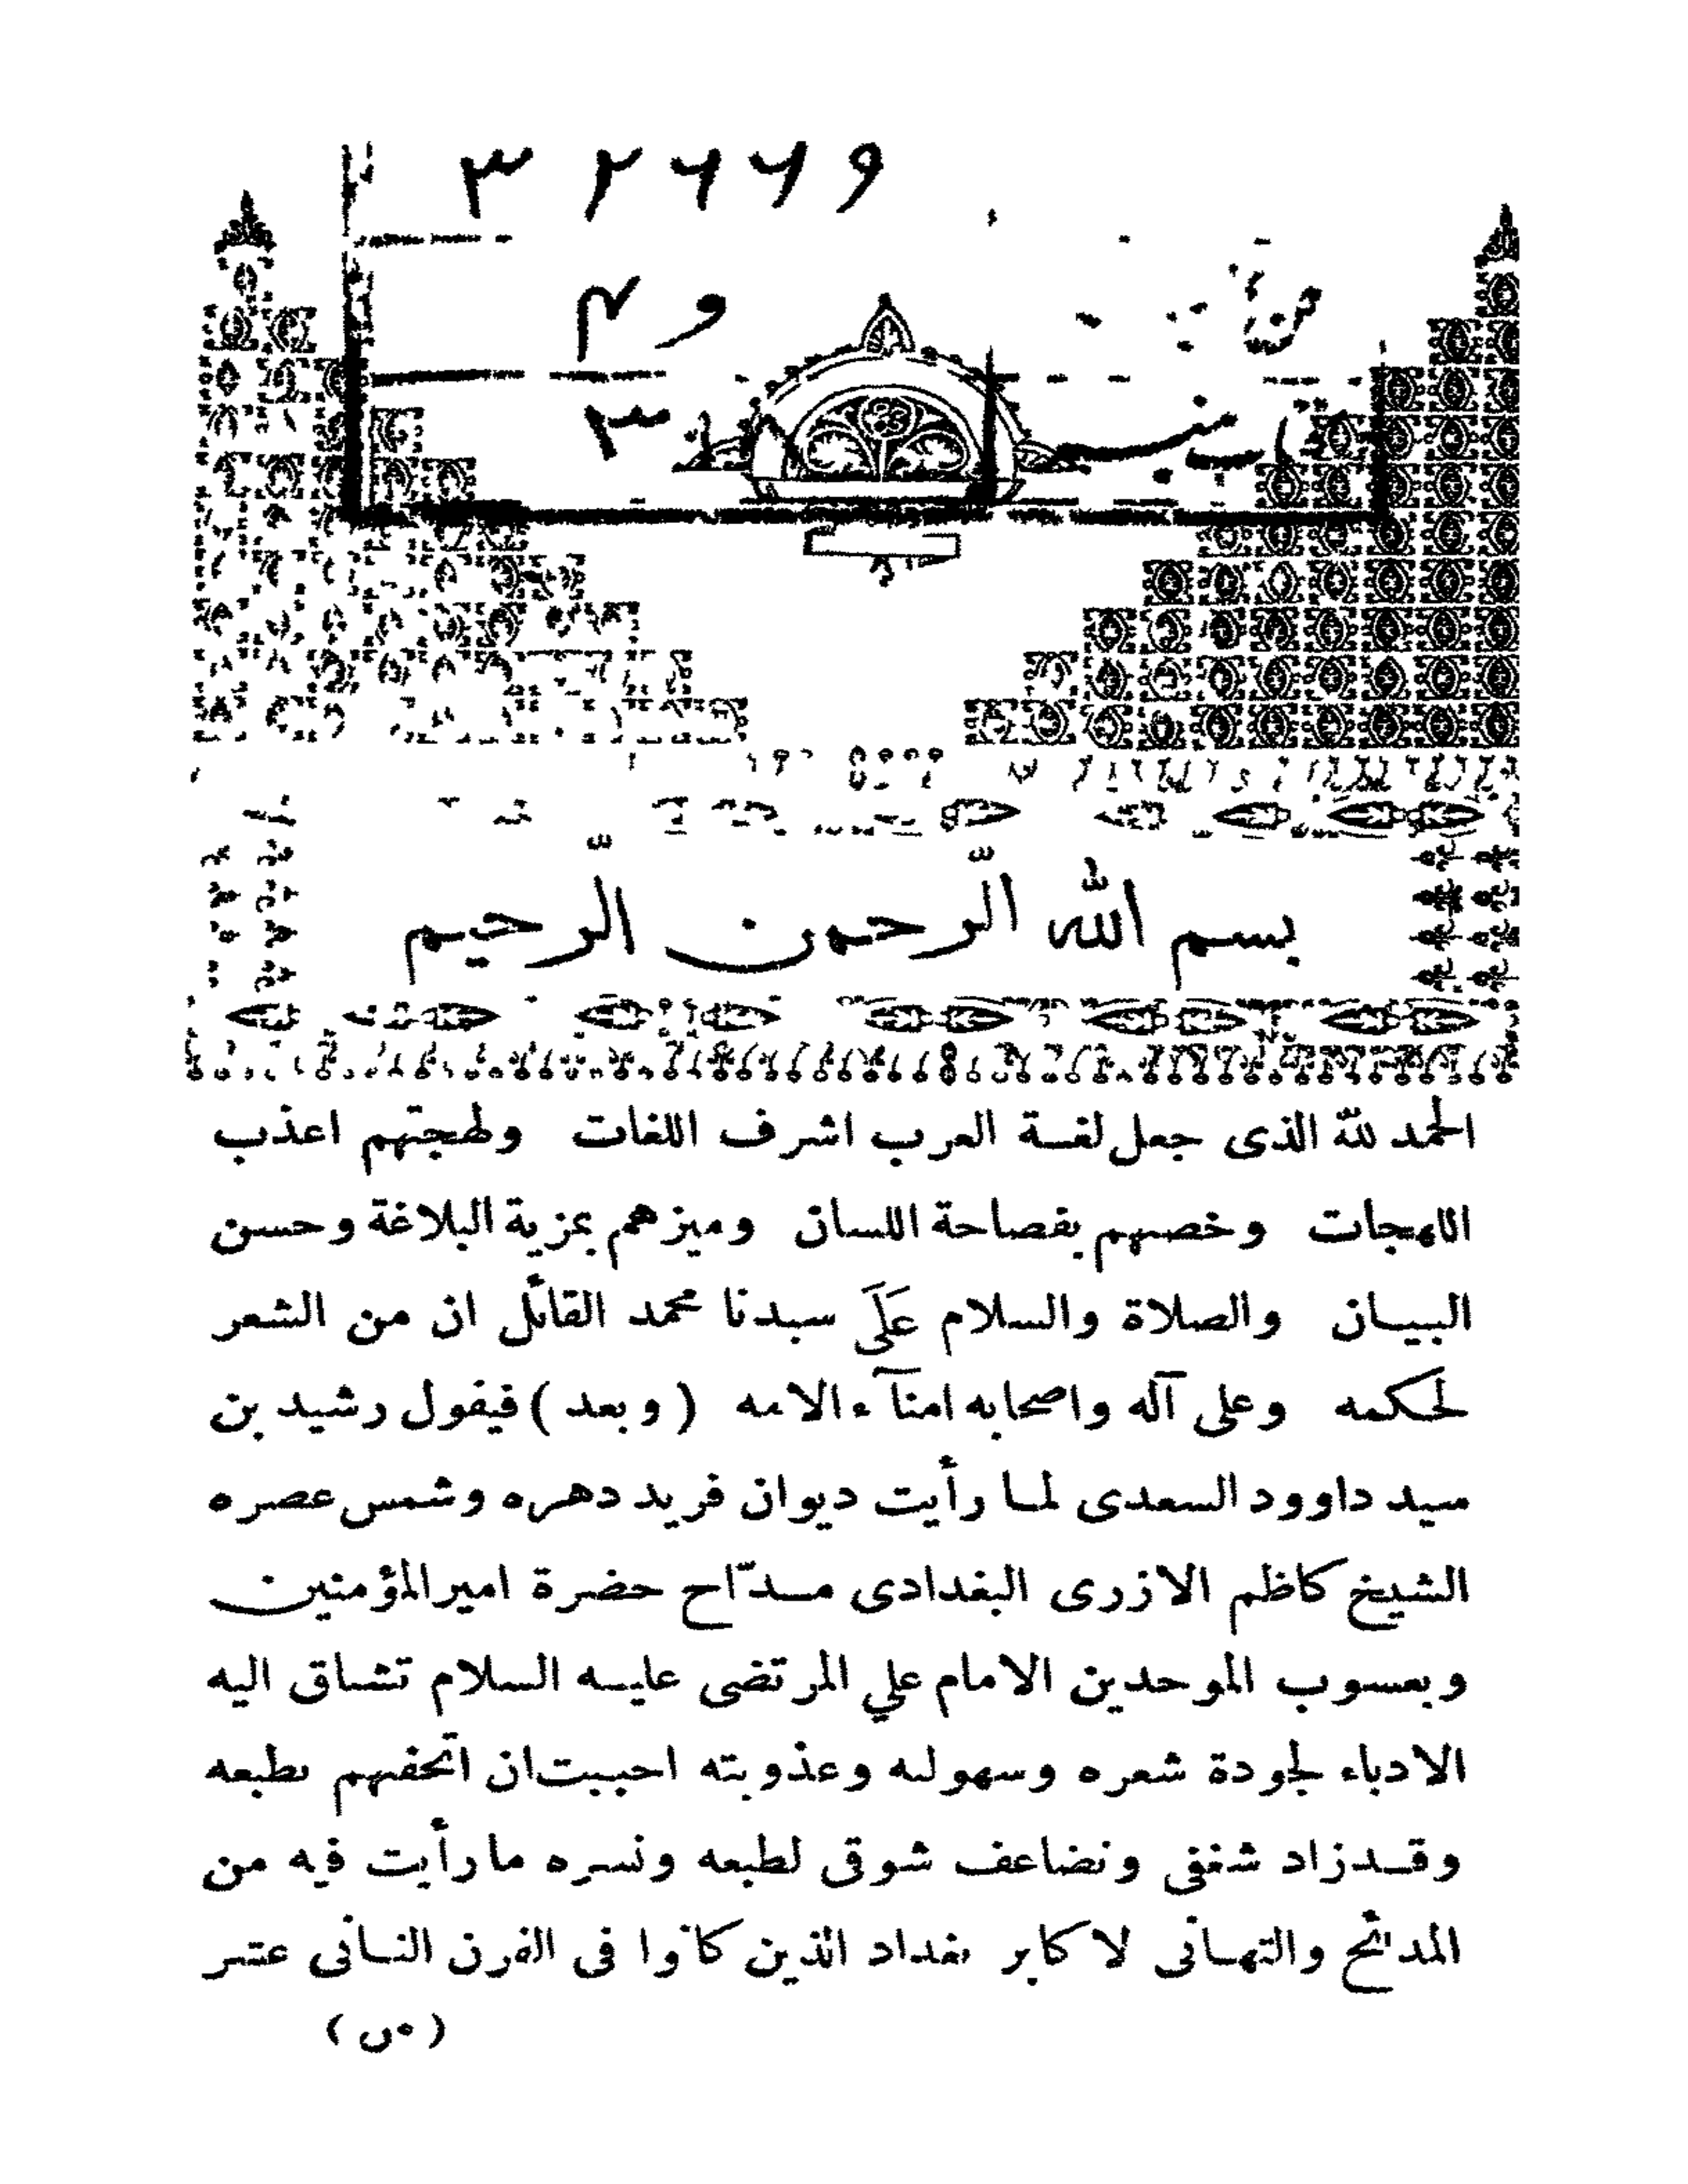 ٣٢٦٦٩
بسم الله الرّحمن الرّحيم
الحمد لله الذى جعل لغة العرب اشرف اللغات ولهجتهم اعذب
اللهجات وخصهم بفصاحة اللسان وميزهم بمزية البلاغة وحسن
البيان والصلاة والسلام عَلَى سيدنا محمد القائل ان من الشعر
لحكمه وعلى آله واصحابه امنآء الامه (وبعد) فيقول رشيد بن
سيد داوود السعدى لما رأيت ديوان فريد دهره وشمس عصره
الشيخ كاظم الازرى البغدادى مدّاح حضرة امير المؤمنين
ويعسوب الموحدين الامام علي المرتضى عليه السلام تشاق اليه
الادباء لجودة شعره وسهولته وعذوبته احببت ان اتحفهم بطبعه
وقد زاد شغفى وتضاعف شوقى لطبعه ونشره ما رأيت فيه من
المدائح والتهانى لاكابر بغداد الذين كانوا فى القرن الثانى عشر